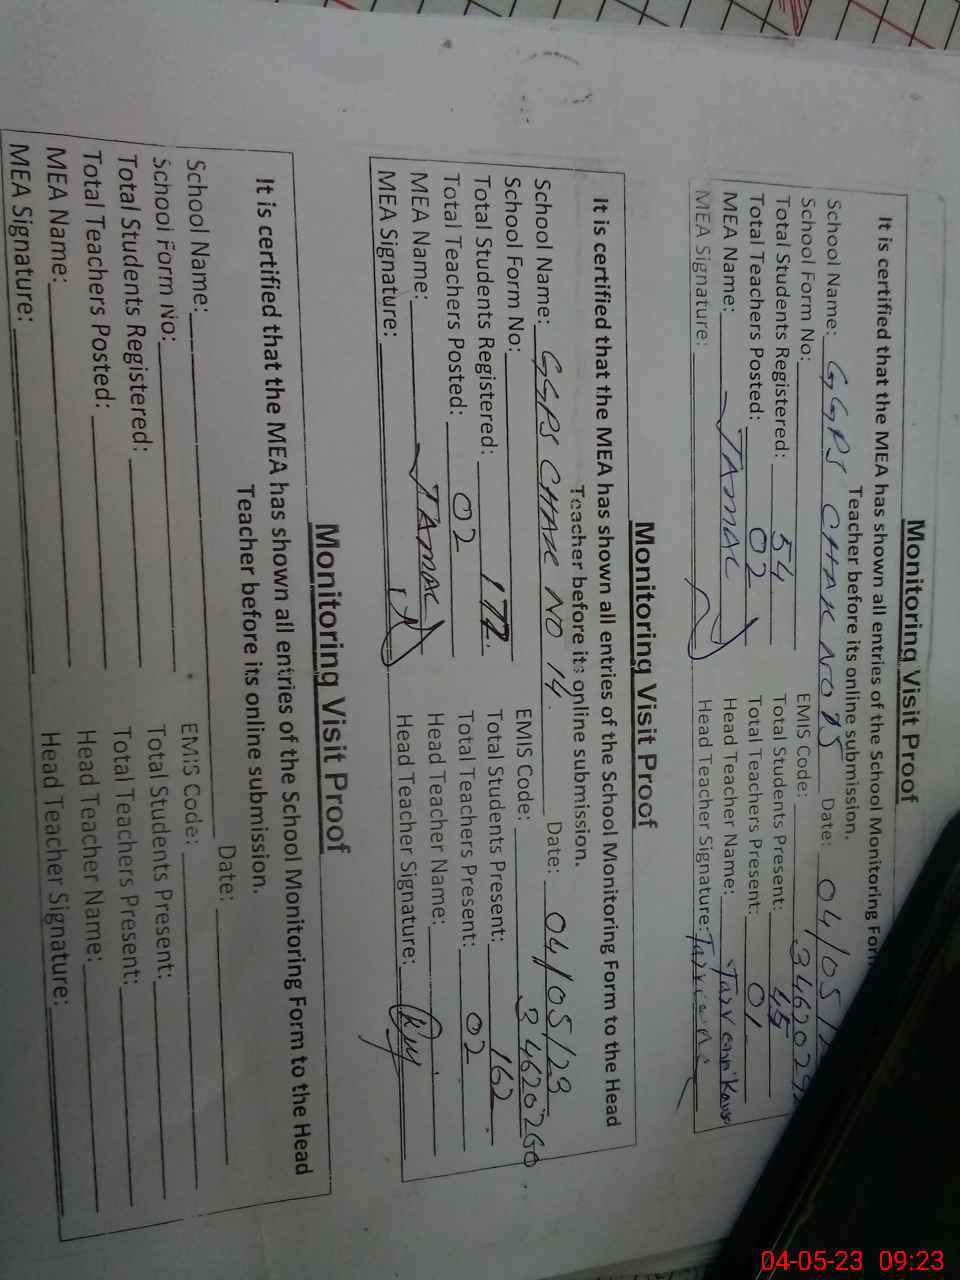 Monitoring Visit Proof
It is certified that the MEA has shown all entries of the School Monitoring Form
Teacher before its online submission.
School Name: GGPS CHAK NO 15 Date: 04/05/
School Form No: EMIS Code: 3462029
Total Students Registered: 54 Total Students Present: 45
Total Teachers Posted: 02 Total Teachers Present: 01
MEA Name: JAMAL Head Teacher Name:
MEA Signature: Head Teacher Signature:
Monitoring Visit Proof
It is certified that the MEA has shown all entries of the School Monitoring Form to the Head
Teacher before its online submission.
School Name: GGPS CHAK NO 14. Date: 04/05/23
School Form No: EMIS Code: 34620260
Total Students Registered: 172. Total Students Present: 162
Total Teachers Posted: 02 Total Teachers Present: 02
MEA Name: JAMAL Head Teacher Name:
MEA Signature: Head Teacher Signature:
Monitoring Visit Proof
It is certified that the MEA has shown all entries of the School Monitoring Form to the Head
Teacher before its online submission.
School Name: Date:
School Form No: EMIS Code:
Total Students Registered: Total Students Present:
Total Teachers Posted: Total Teachers Present:
MEA Name: Head Teacher Name:
MEA Signature: Head Teacher Signature:
04-05-23 09:23